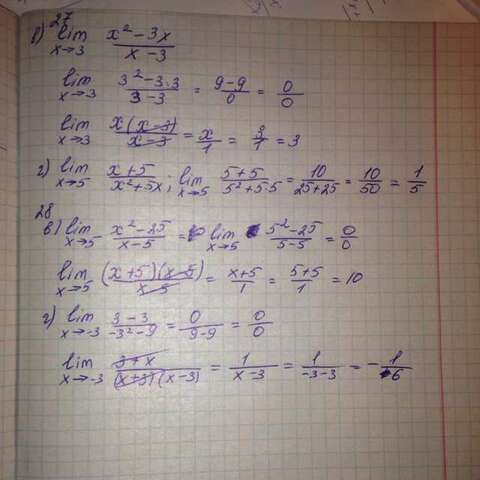 27
в) lim x→3 x²-3x / x-3
lim x→3 3²-3·3 / 3-3 = 9-9 / 0 = 0/0
lim x→3 x(x-3) / x-3 = x/1 = 3/1 = 3
г) lim x→5 x+5 / x²+5x; lim x→5 5+5 / 5²+5·5 = 10 / 25+25 = 10/50 = 1/5
28
в) lim x→5 x²-25 / x-5 = lim x→5 5²-25 / 5-5 = 0/0
lim x→5 (x+5)(x-5) / x-5 = x+5 / 1 = 5+5 / 1 = 10
г) lim x→-3 3-3 / -3²-9 = 0 / 9-9 = 0/0
lim x→-3 3+x / (x+3)(x-3) = 1 / x-3 = 1 / -3-3 = -1/6